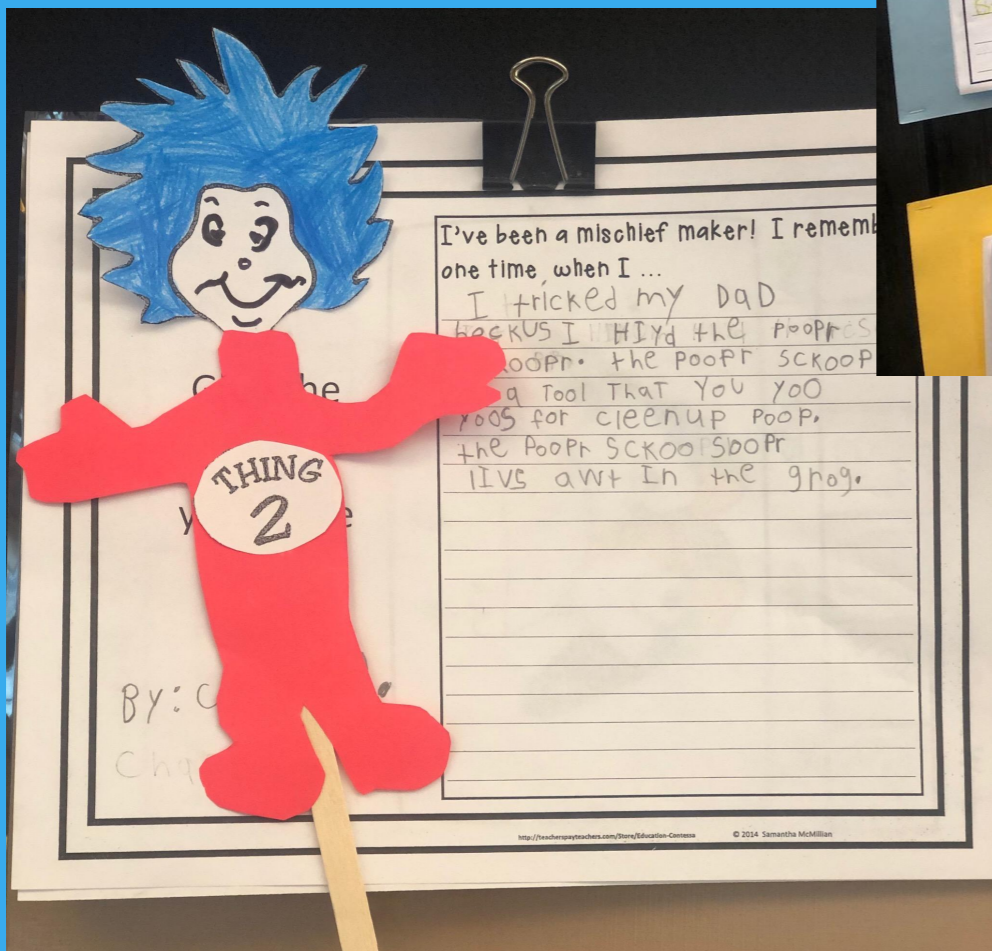 I've been a mischief maker! I rememb
one time, when I ...
I tricked my DaD
I HIyd the PooPr
the PooPr SCKOOP
a Tool ThaT You yoo
yoos for cleenup Poop.
the PooPr SCKoo Spopr
lIvs awt In the grog.
THING
2
By: C
Cha
http://teacherspayteachers.com/Store/Education-Contessa © 2014 Samantha McMillian